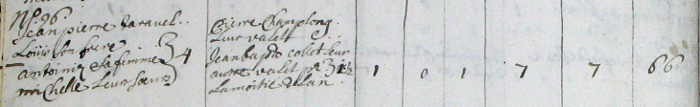 N° 96.
Jean pierre varavel..
Louis son frere
antoinia sa femme 4
michelle Leur Soeur
pierre Champlong.
Leur valet
Jean bapte collet Leur
autre valet p 3
La moitie de Lan.
1 0 1 7 7 66